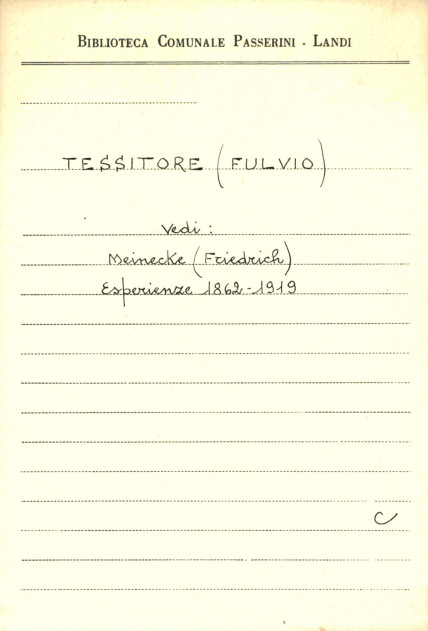 BIBLIOTECA COMUNALE PASSERINI - LANDI
TESSITORE (FULVIO)
Vedi:
Meinecke (Friedrich)
Esperienze 1862-1919
C